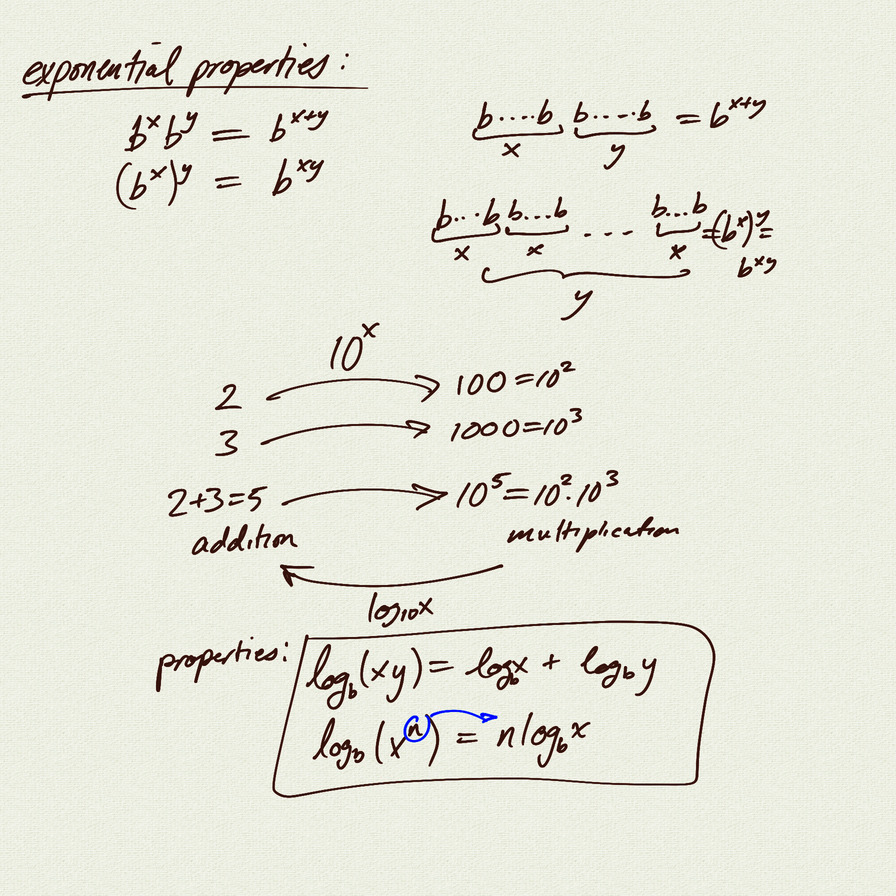 exponential properties:
bˣ bʸ = bˣ⁺ʸ
(bˣ)ʸ = bˣʸ
b....b b....b = bˣ⁺ʸ
x y
b...b b...b .... b...b = (bˣ)ʸ =
x x x
bˣʸ
y
10ˣ
2 → 100 = 10²
3 → 1000 = 10³
2+3=5 → 10⁵ = 10²·10³
addition multiplication
←
log₁₀x
properties:
log_b(xy) = log_b x + log_b y
log_b(xⁿ) = n log_b x